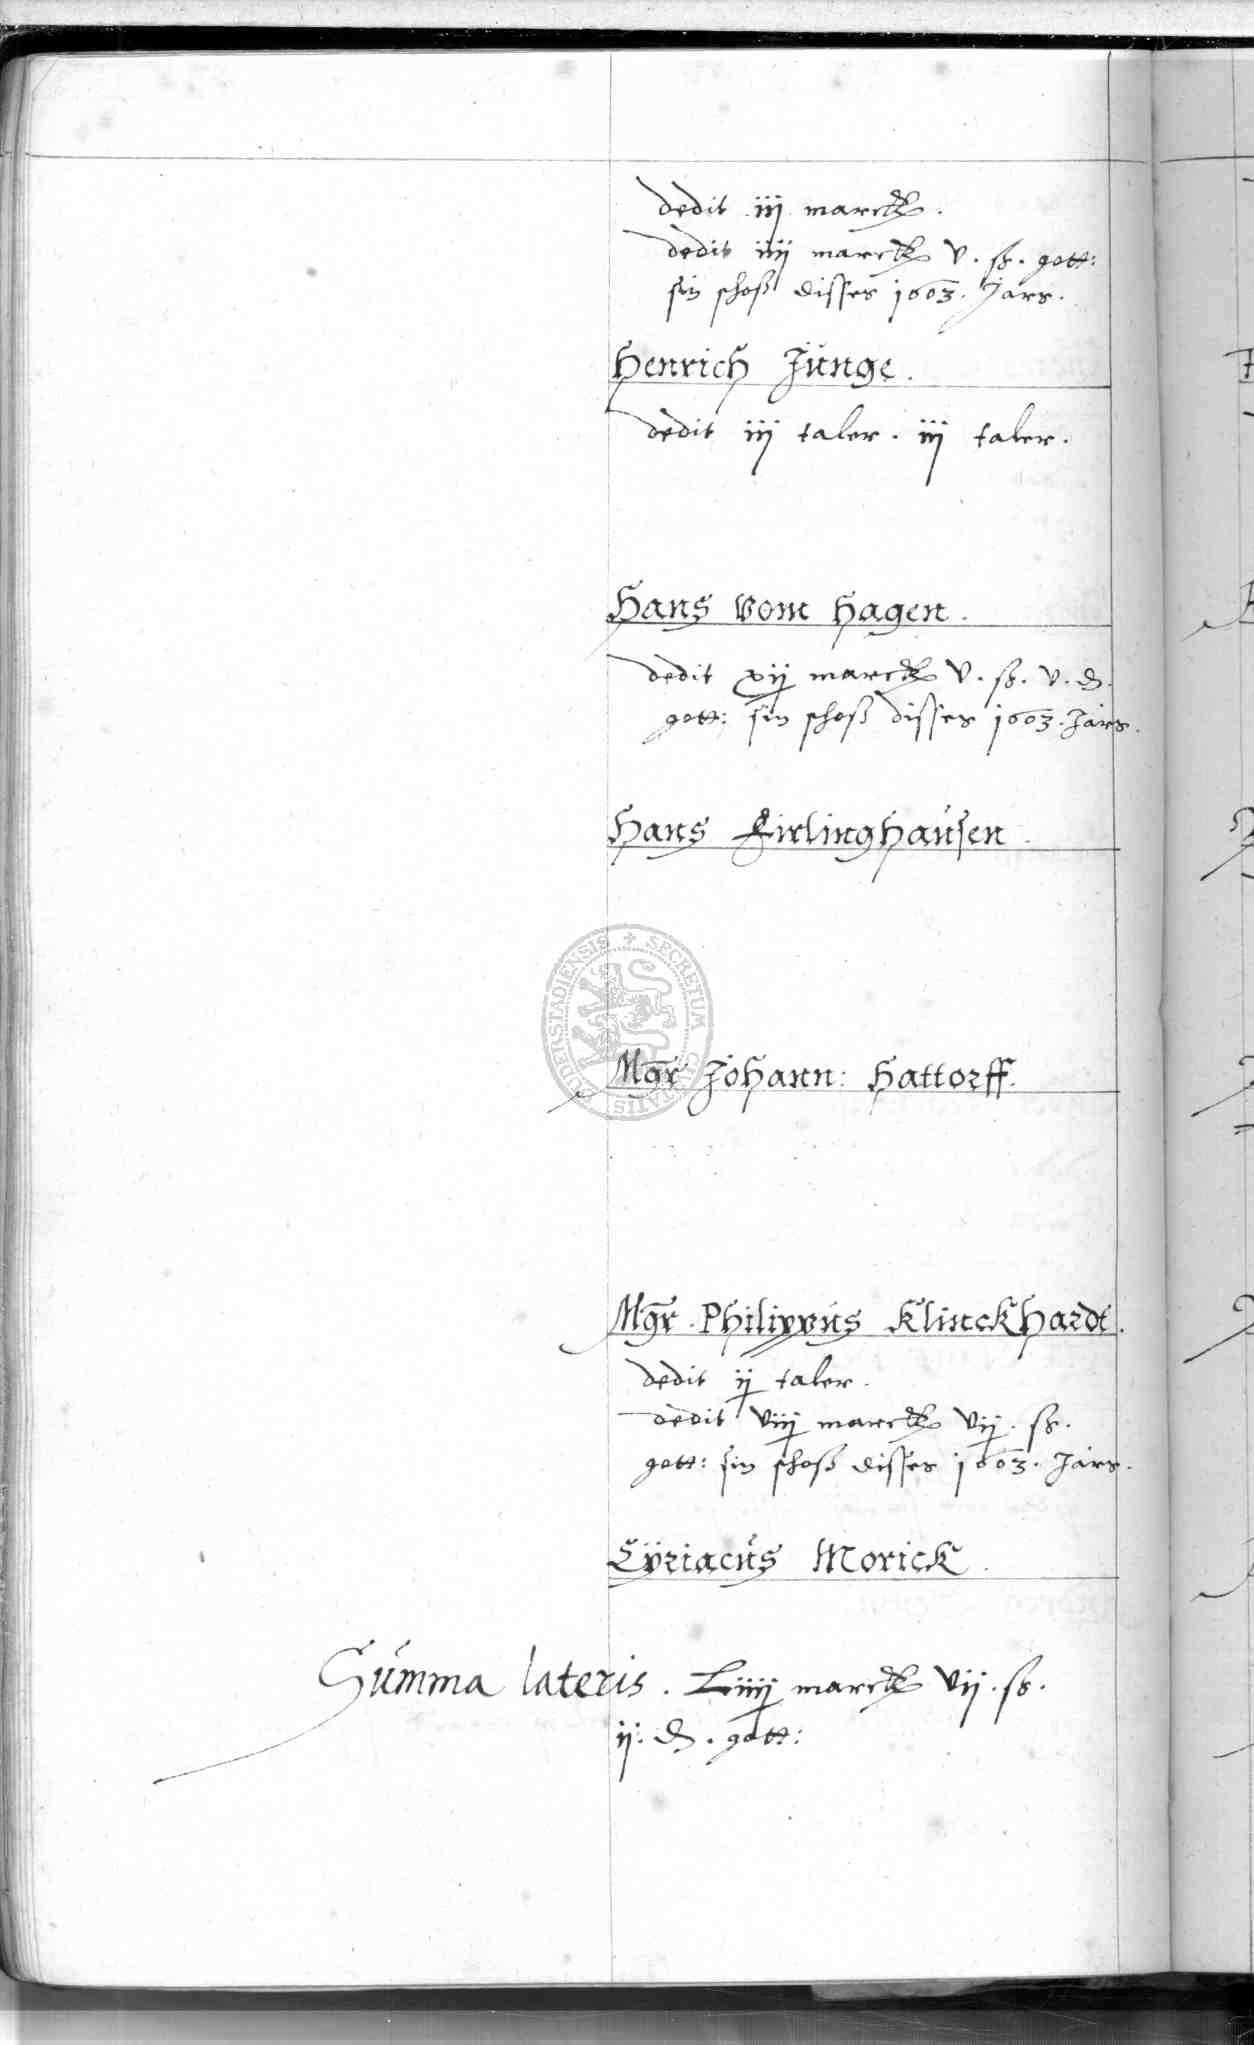 dedit iij marck.
dedit iiij marck v. ß. gott:
sin schoß disses 1603. Jars.
Henrich Junge.
dedit iij taler. iij taler.
Hans vom Hagen.
dedit xij marck v. ß. v. d.
gott: sin schoß disses 1603. Jars.
Hans Eirlinghausen.
Mgr Johann: Hattorff.
Mgr. Philippus Klinckhardt.
dedit ij taler.
dedit viij marck vij. ß.
gott: sin schoß disses 1603. Jars.
Cÿriacus Morick.
Summa lateris. Liiij marck vij. ß.
ij. d. gott:
SECRETUM CIVITATIS DUDERSTADIENSIS